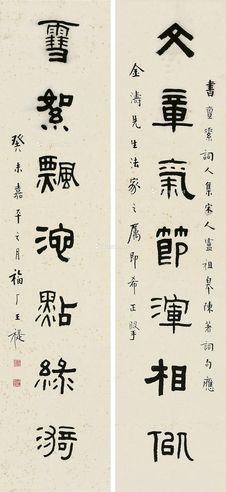 書
詞人集宋人盧祖皋陳著詞句應
文章氣節渾相佀
金濤先生法家之屬即希正
雪絮飄池點綠漪
癸未嘉平之月福厂王禔